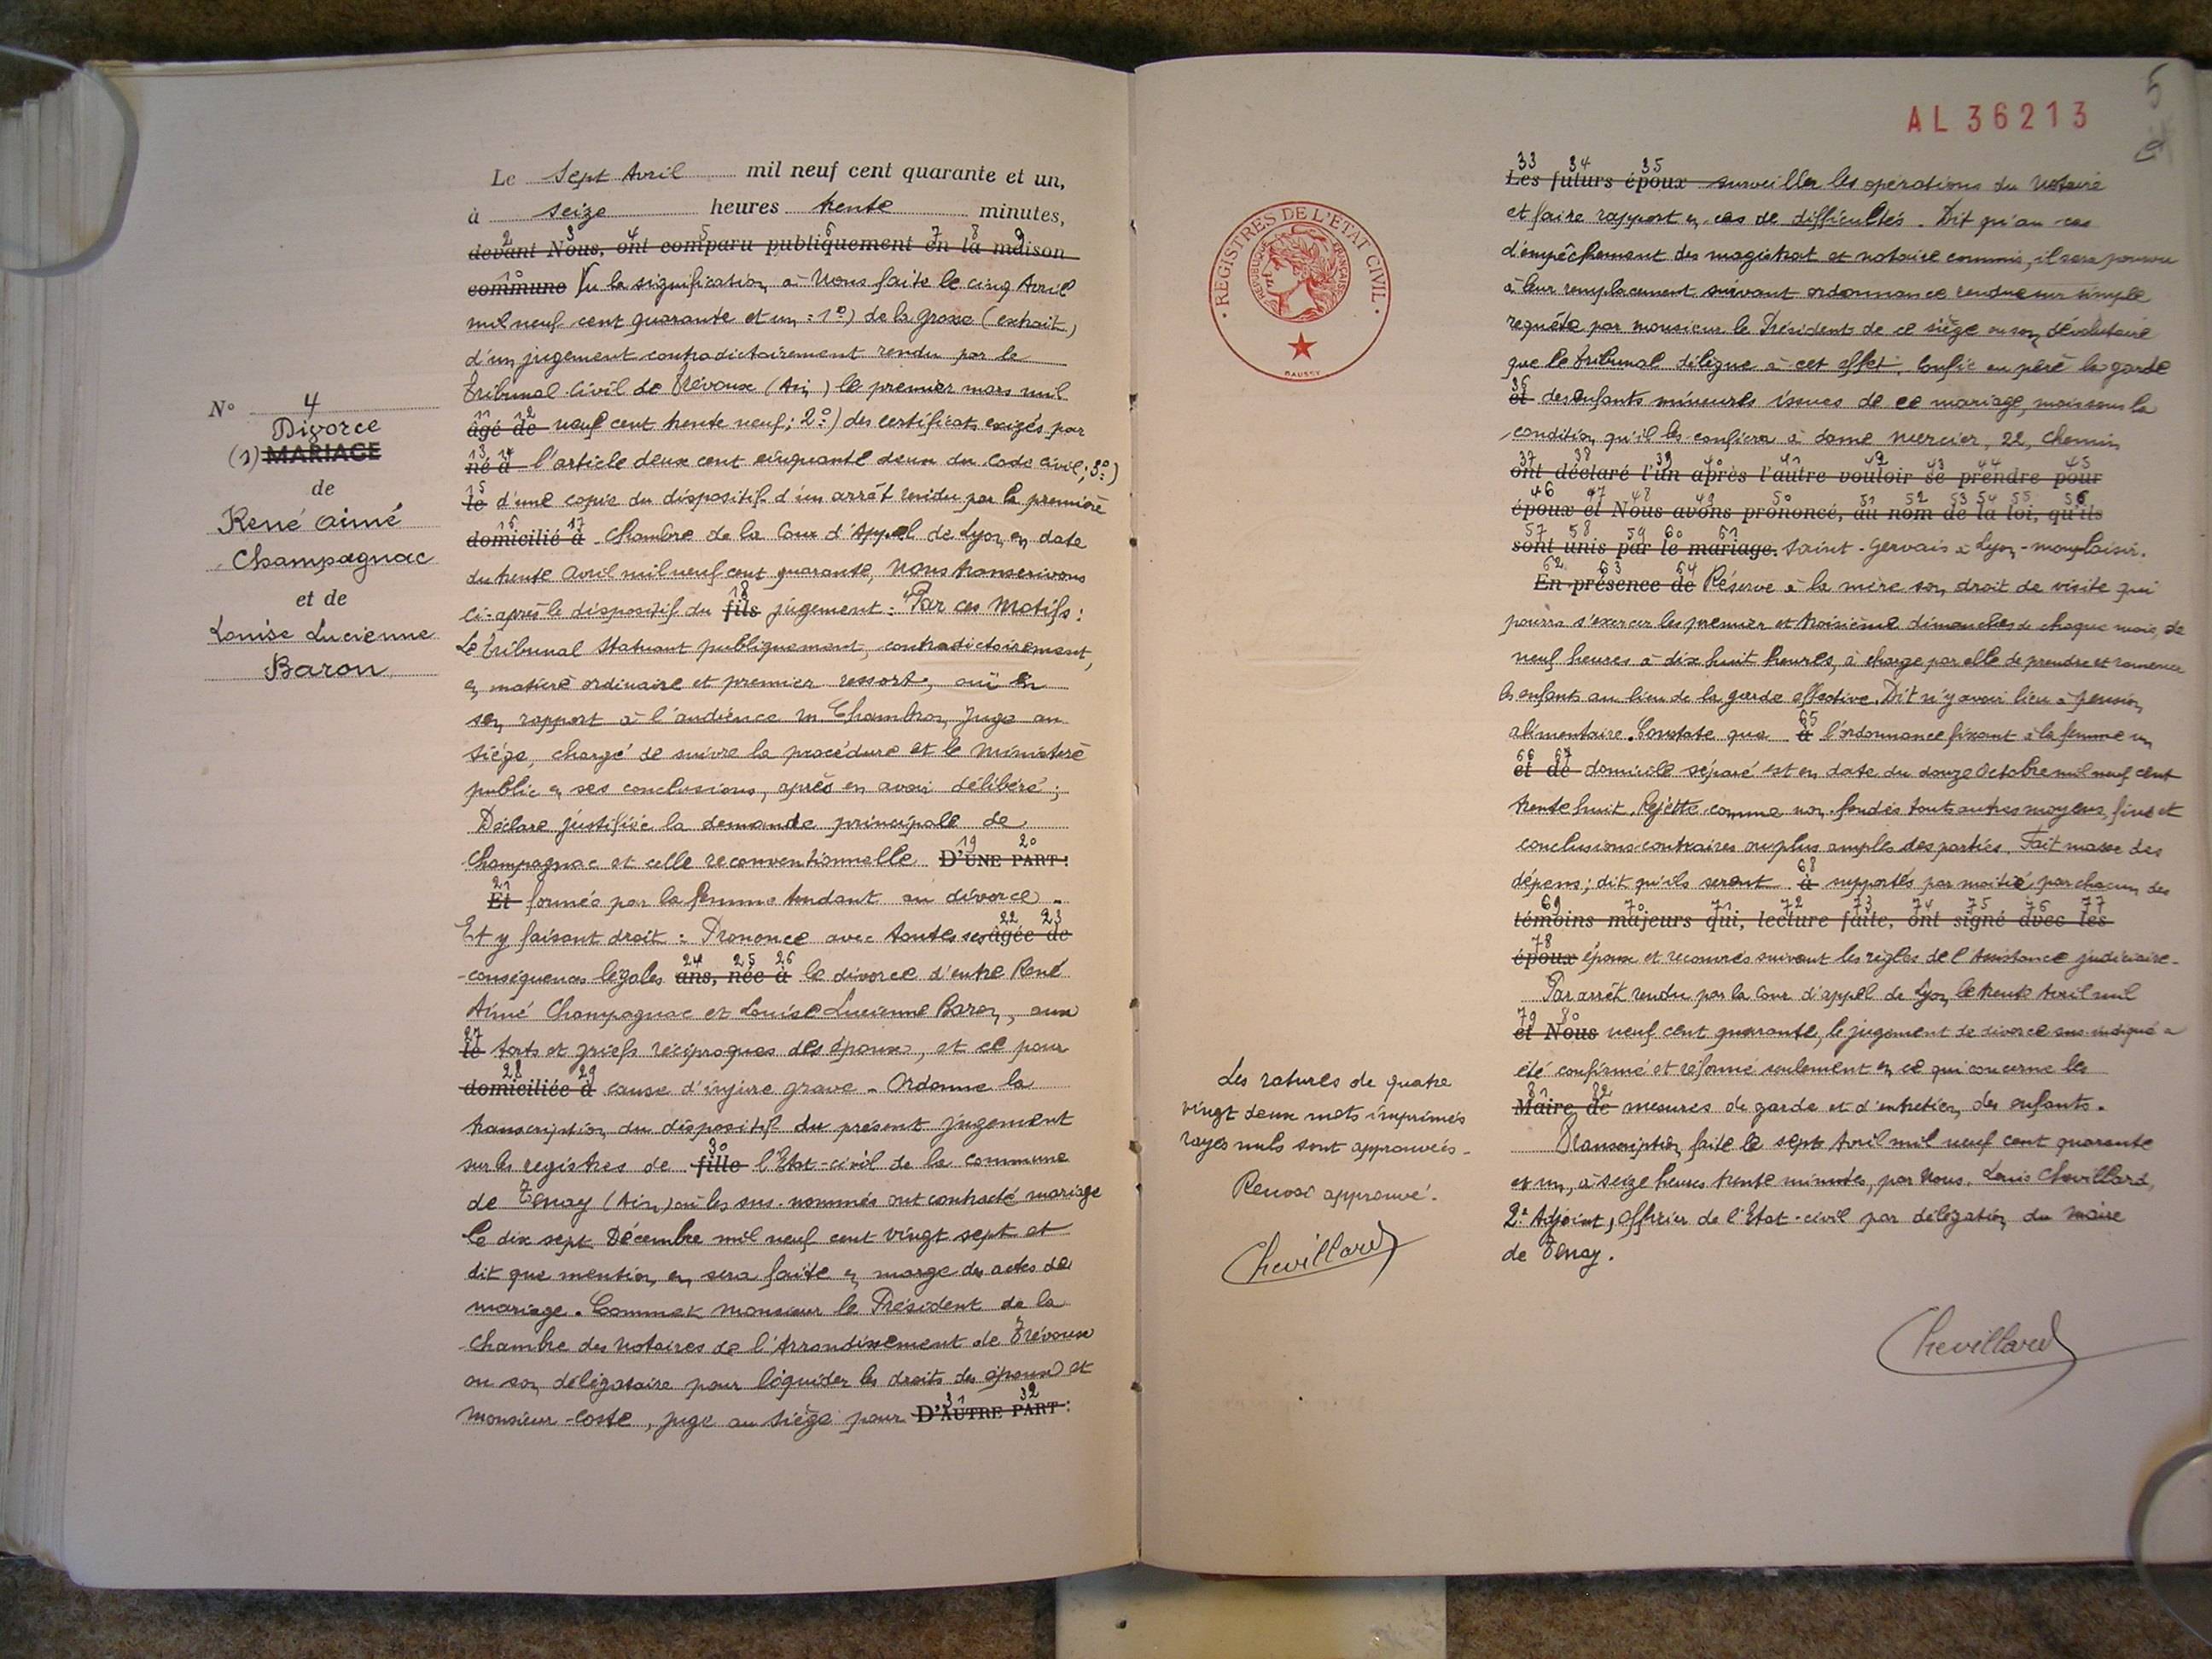 N° 4
Divorce
(1) MARIAGE
de
René Aimé
Champagnac
et de
Louise Lucienne
Baron
Le Sept Avril mil neuf cent quarante et un,
à seize heures trente minutes,
2 3 4 5 6 7 8 9
devant Nous, ont comparu publiquement en la maison
10
commune Vu la signification à Nous faite le cinq Avril
mil neuf cent quarante et un : 1°) de la grosse (extrait)
d'un jugement contradictoirement rendu par le
Tribunal Civil de Trévoux (Ain) le premier mars mil
11 12
âgé de neuf cent trente neuf ; 2°) des certificats exigés par
13 14
né à l'article deux cent cinquante deux du Code civil ; 3°)
15
le d'une copie du dispositif d'un arrêt rendu par la première
16 17
domicilié à Chambre de la Cour d'Appel de Lyon en date
du trente Avril mil neuf cent quarante, Nous transcrivons
18
ci-après le dispositif du fils jugement : "Par ces Motifs :
Le Tribunal statuant publiquement, contradictoirement,
en matière ordinaire et premier ressort, ouï en
son rapport à l'audience M. Juge au
siège, chargé de suivre la procédure et le Ministère
public en ses conclusions, après en avoir délibéré ;
Déclare justifiée la demande principale de
19 20
Champagnac et celle reconventionnelle D'UNE PART :
21
Et formée par la femme tendant au divorce -
22 23
Et y faisant droit : Prononce avec toutes ses âgée de
24 25 26
conséquences légales ans, née à le divorce d'entre René
Aimé Champagnac et Louise Lucienne Baron, aux
27
le torts et griefs réciproques des époux, et ce pour
28 29
domiciliée à cause d'injure grave - Ordonne la
transcription du dispositif du présent jugement
30
sur les registres de fille l'Etat-civil de la commune
de Tenay (Ain) où les sus-nommés ont contracté mariage
le dix sept Décembre mil neuf cent vingt sept et
dit que mention en sera faite en marge des actes de
mariage. Commet Monsieur le Président de la
Chambre des Notaires de l'Arrondissement de Trévoux
ou son délégataire pour liquider les droits des époux et
31 32
Monsieur Coste, juge au siège pour D'AUTRE PART :
REGISTRES DE L'ETAT CIVIL
REPUBLIQUE FRANÇAISE
Les ratures de quatre
vingt deux mots imprimés
rayés nuls sont approuvées -
Renvoi approuvé.
Chevillard
AL 36213
5
33 34 35
Les futurs époux surveiller les opérations du Notaire
et faire rapport en cas de difficultés. Dit qu'au cas
d'empêchement des magistrat et notaire commis, il sera pourvu
à leur remplacement suivant ordonnance rendue sur simple
requête par Monsieur le Présidents de ce siège ou son dévolutaire
que le Tribunal délègue à cet effet. Confie au père la garde
36
et des enfants mineurs issues de ce mariage, mais sous la
condition qu'il les confiera à dame Mercier, 22, Chemin
37 38 39 40 41 42 43 44 45
ont déclaré l'un après l'autre vouloir se prendre pour
46 47 48 49 50 51 52 53 54 55 56
époux et Nous avons prononcé, au nom de la loi, qu'ils
57 58 59 60 61
sont unis par le mariage. Saint-Gervais à Lyon-Monplaisir.
62 63 64
En présence de Réserve à la mère son droit de visite qui
pourra s'exercer les premier et troisième dimanches de chaque mois, de
neuf heures à dix huit heures, à charge par elle de prendre et ramener
les enfants au lieu de la garde effective. Dit n'y avoir lieu à pension
65
alimentaire. Constate que à l'ordonnance fixant à la femme un
66 67
et de domicile séparé est en date du douze Octobre mil neuf cent
trente huit. Rejette comme non fondés touts autres moyens, fins et
conclusions contraires ou plus amples des parties. Fait masse des
68
dépens ; dit qu'ils seront à supportés par moitié par chacun des
69 70 71 72 73 74 75 76 77
témoins majeurs qui, lecture faite, ont signé avec les
78
époux époux et recouvrés suivant les règles de l'Assistance judiciaire -
Par arrêt rendu par la Cour d'appel de Lyon le trente Avril mil
79 80
et Nous neuf cent quarante, le jugement de divorce sus-indiqué a
été confirmé et réformé seulement en ce qui concerne les
81 82
Maire de mesures de garde et d'entretien des enfants.
Transcription faite le sept Avril mil neuf cent quarante
et un, à seize heures trente minutes, par Nous, Louis Chevillard,
2e Adjoint, Officier de l'Etat-civil par délégation du Maire
de Tenay.
Chevillard